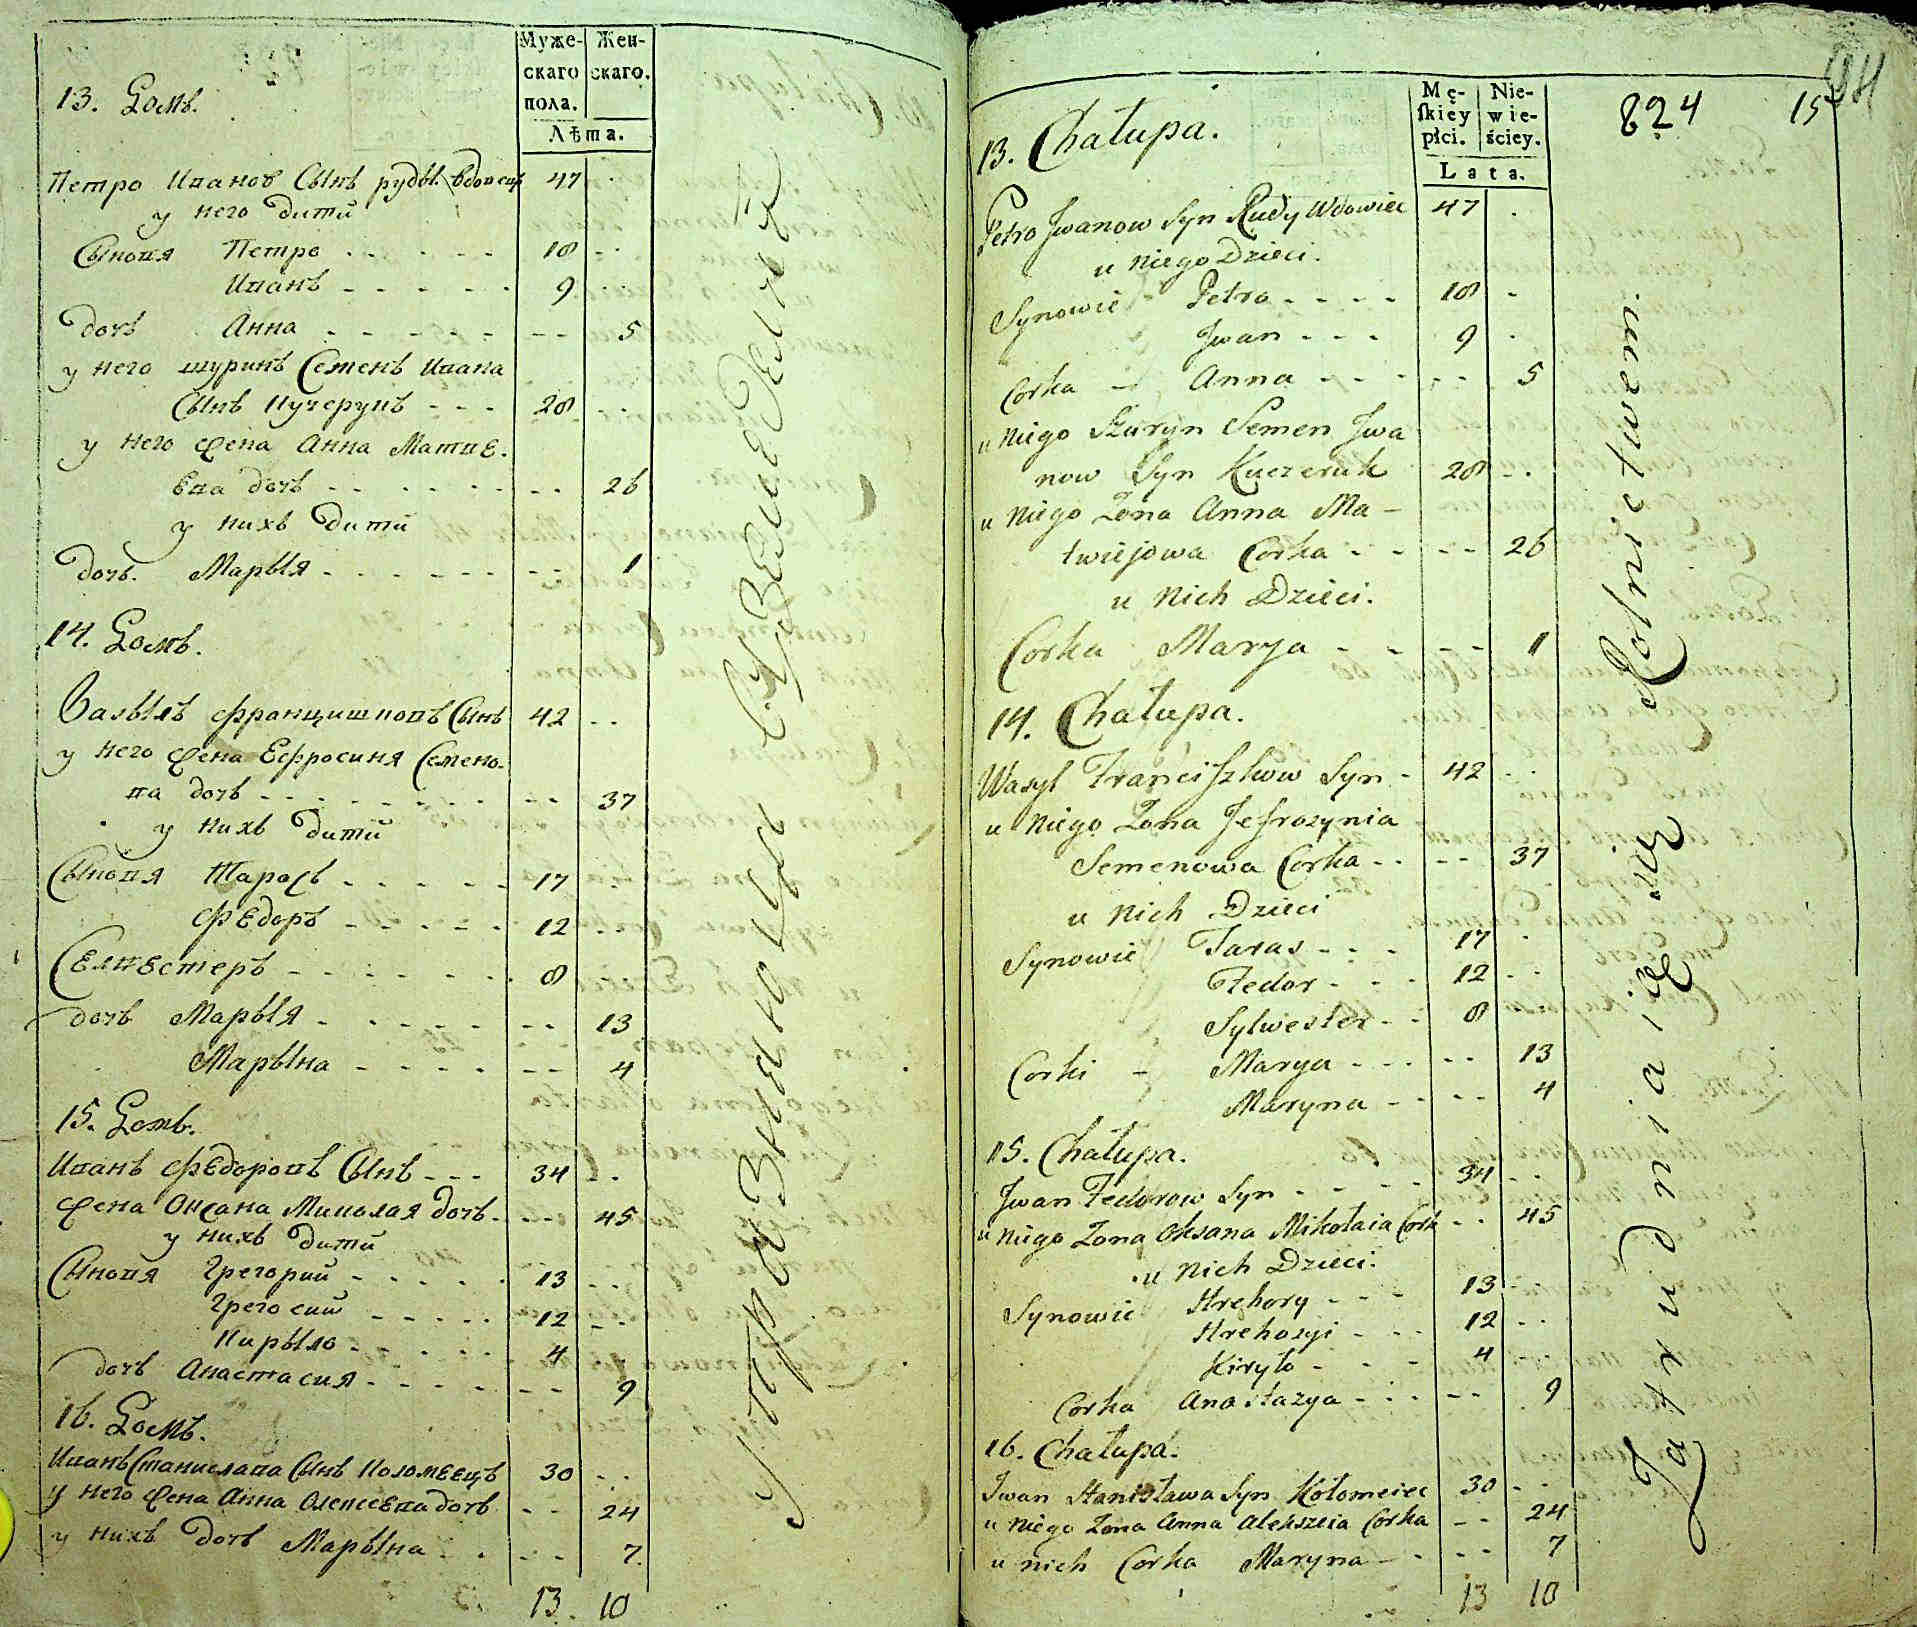 Муже- Жен-
скаго скаго.
пола.
Лѣта.
13. Домъ.
Петро Иванов Сынъ руды. вдовецъ 47
у него дити
Сыновя Петро 18
Иванъ 9
дочъ Анна 5
у него шуринъ Семенъ Ивана
Сынъ Кучерукъ 28
у него жена Анна Матве-
ева дочъ 26
у нихъ дити
дочъ. Марыя 1
14. Домъ.
Василъ францишковъ Сынъ 42
у него жена Еефросиня Семено-
ва дочъ 37
у нихъ дити
Сыновя Тарасъ 17
Федоръ 12
Селвестеръ 8
дочъ Марыя 13
Марына 4
15. Домъ.
Иванъ Федоровъ Сынъ 34
жена Оксана Миколая дочъ 45
у нихъ дити
Сыновя Грегорий 13
Грегосий 12
Кирыло 4
дочъ Анастасия 9
16. Домъ.
Иванъ Станислава Сынъ Коломеецъ 30
у него жена Анна Олексеева дочъ 24
у нихъ дочъ Марына 7.
13. 10
упражнаются в земледелии
824 15
Mę- Nie-
ſkiey wie-
płci. ściey.
Lata.
13. Chałupa.
Petro Jwanow Syn Rudy Wdowiec 47
u niego Dzieci.
Synowie Petro 18
Jwan 9
Corka Anna 5
u niego Szuryn Semen Jwa
now Syn Kuczeruk 28
u niego Zona Anna Ma-
twiejowa Corka 26
u nich Dzieci.
Corka Marya 1
14. Chałupa.
Wasyl Franciszkow Syn 42
u niego Zona Jefrozynia
Semenowa Corka 37
u nich Dzieci
Synowie Taras 17
Fedor 12
Sylwester 8
Corki Marya 13
Maryna 4
15. Chałupa.
Jwan Fedorow Syn 34
u niego Zona Oksana Mikołaia Cork 45
u nich Dzieci.
Synowie Hrehory 13
Hrehosyi 12
Kiryło 4
Corka Anastazya 9
16. Chałupa.
Jwan Stanisława Syn Kołomeiec 30
u niego Zona Anna Alekszeia Corka 24
u nich Corka Maryna 7
13 10
Zatrudniaią się Rolnictwem.